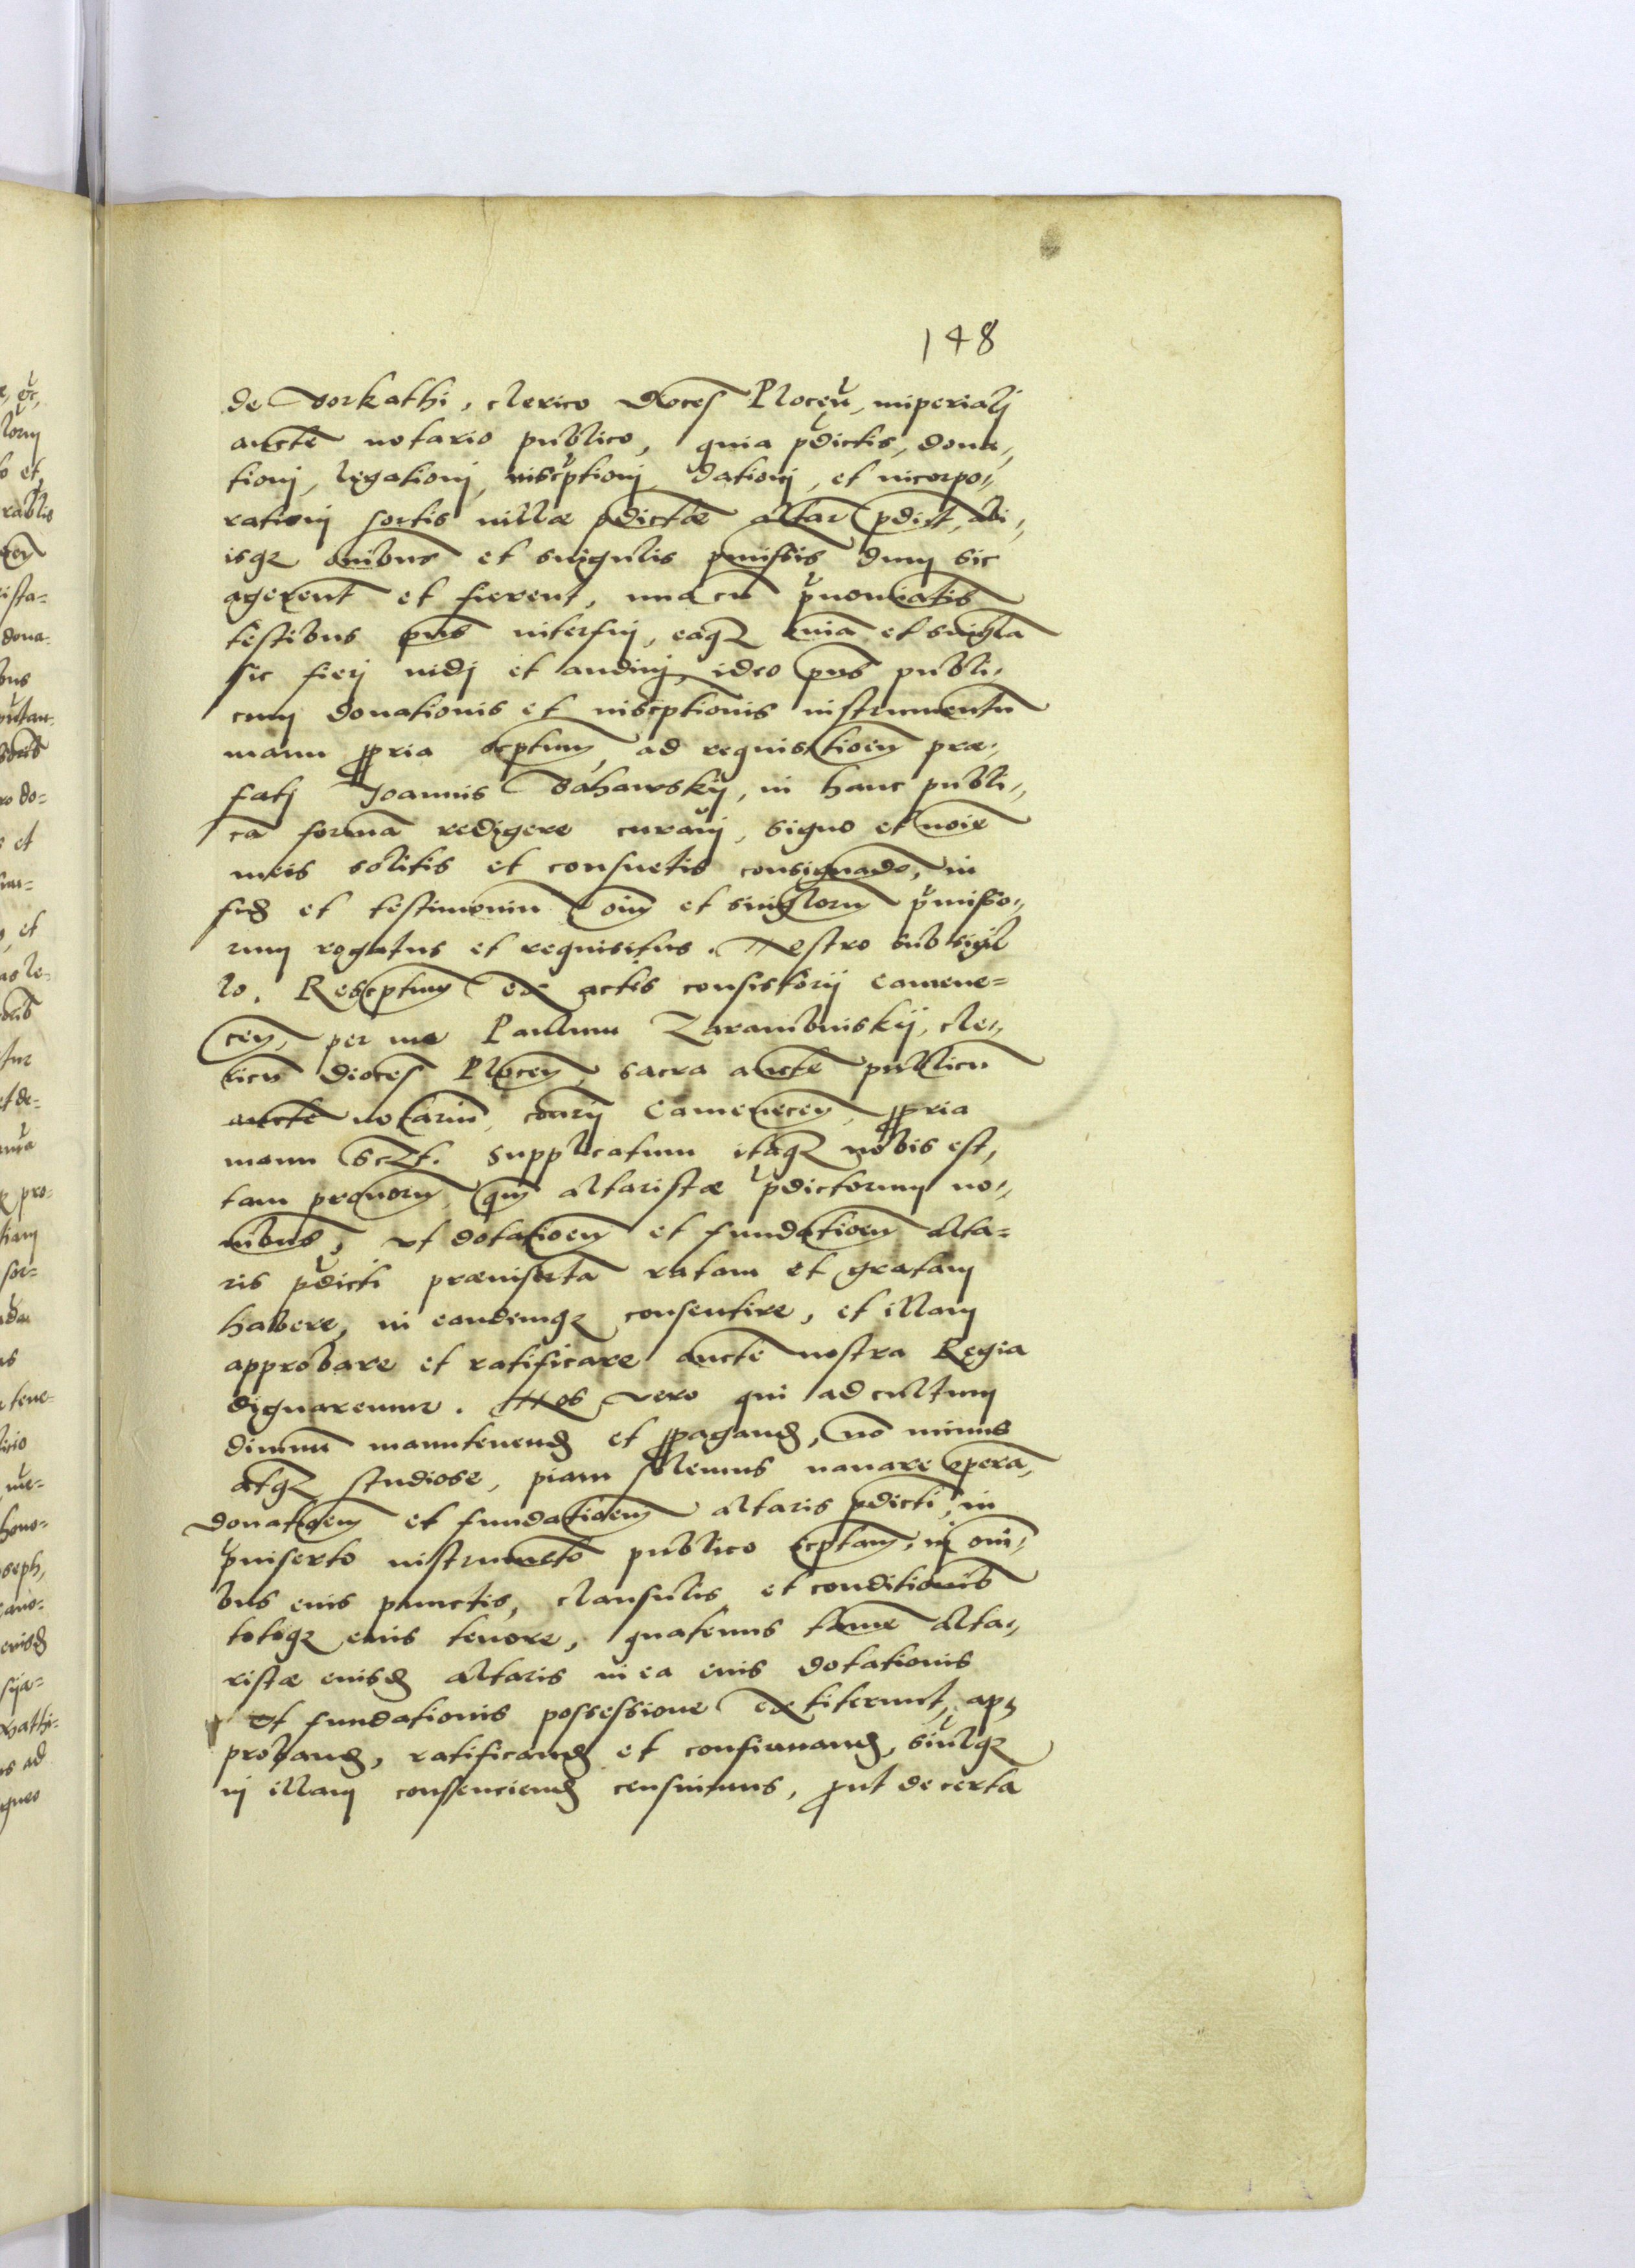 148
de Vorkathi, clerico dioces Plocen, imperialj
aucte notario publico, quia pdictis, dona„
tionj, legationj, inscptionj, dationj, et incorpo„
rationj sortis uillæ pdictæ altar pdict, ali„
isqz omibus et singulis pmissis dum sic
agerent et fierent, una cu pnominatis
testibus pns interfuj, eaqz omia et singla
sic fierj uidj et audiuj, ideo pns publi„
cum donationis et inscptionis instrumentu
manu ppria scptum, ad requisitioem præ„
fatj Joannis Dahawskij, in hanc publi„
ca forma redigere curauj, signo et noie
meis solitis et consuetis consignado, in
fid et testimoniu oim et singlorum pmisso„
rum rogatus et requisitus. Nostro sub sigil
lo. Rescptum ex actis consistorij Camene=
cen, per me Paulum Zarambinskij, cle„
ricu dioces Plocen, sacra aucte publicu
aucte notariu, conrij Camenecen, ppria
manu sczt. Supplicatum itaqz nobis est,
tam prouorum, qm altaristæ pdictorum no„
nibus, ut dotatioem et fundatioem alta=
ris pdicti præinserta ratam et gratam
habere, in eandemqz consentire, et illam
approbare et ratificare aucte nostra Regia
dignaremur. Nos vero qui ad cultum
diuinu manutenend et ppagand, no minus
atqz studiose, piam solemus nauare opera,
donatioem et fundatioem altaris pdicti, in
pinserto instrumeto publico scptam, in omi„
bus eius punctis, clausulis et conditionibs
totoqz eius tenore, quatenus tame alta„
ristæ eiusd altaris in ea eius dotationis
et fundationis possessione extiterunt, ap„
proband, ratificand et confirmand, simlqz
in illam consenciend censuimus, put de certa